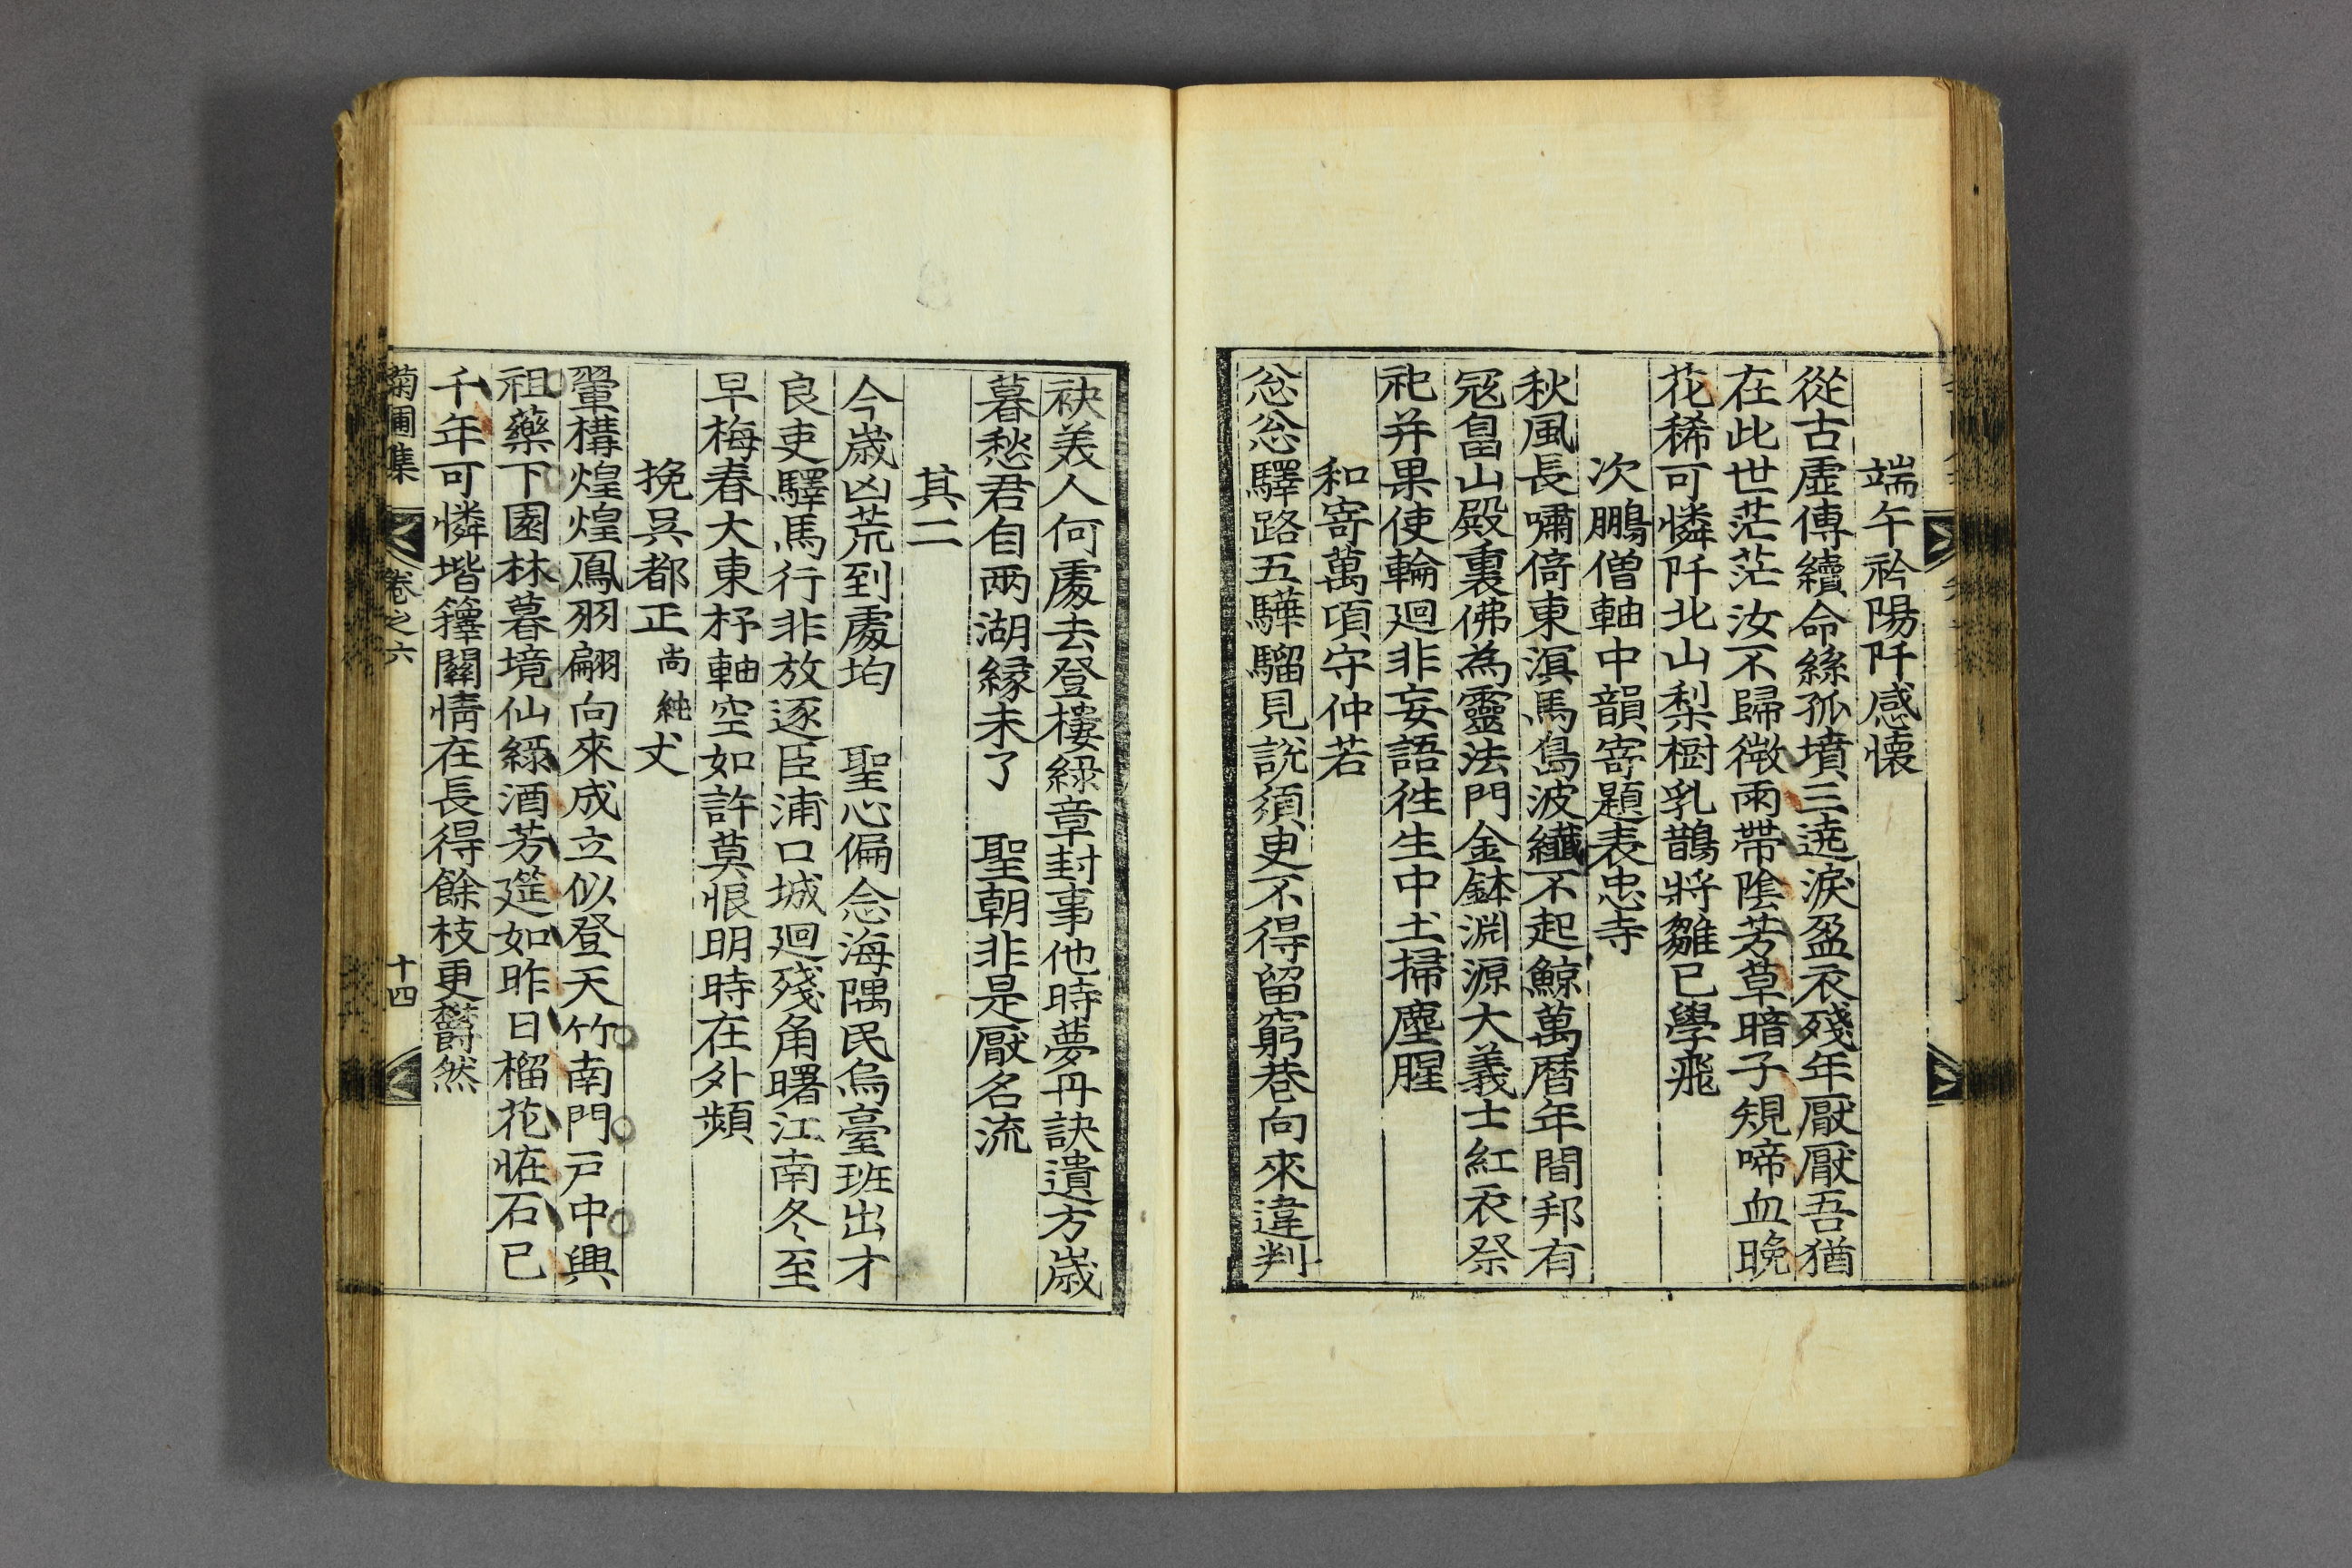 端午衿陽阡感懷
從古虛傳續命絲孤墳三遶淚盈衣殘年厭厭吾猶
在此世茫茫汝不歸微雨帶陰芳草暗子規啼血晚
花稀可憐阡北山梨樹乳鵲將雛已學飛
次鵬僧軸中韻寄題表忠寺
秋風長嘯倚東溟馬島波纖不起鯨萬曆年間邦有
冦畠山殿裏佛為靈法門金鉢淵源大義士紅衣祭
祀并果使輪廻非妄語徃生中土掃塵腥
和寄萬頃守仲若
忩忩驛路五驊騮見說須臾不得留窮巷向來違判
袂美人何處去登樓綠章封事他時夢丹訣遺方歲
暮愁君自兩湖緣未了　聖朝非是厭名流
其二
今歲凶荒到處均　聖心偏念海隅民烏臺班出才
良吏驛馬行非放逐臣浦口城廻殘角曙江南冬至
早梅春大東杼軸空如許莫恨明時在外頻
挽吳都正尙純丈
翬構煌煌鳳羽翩向來成立似登天竹南門戶中興
祖藥下園林暮境仙綠酒芳筵如昨日榴花恠石已
千年可憐堦籜關情在長得餘枝更欝然
菊圃集　卷之六　十四